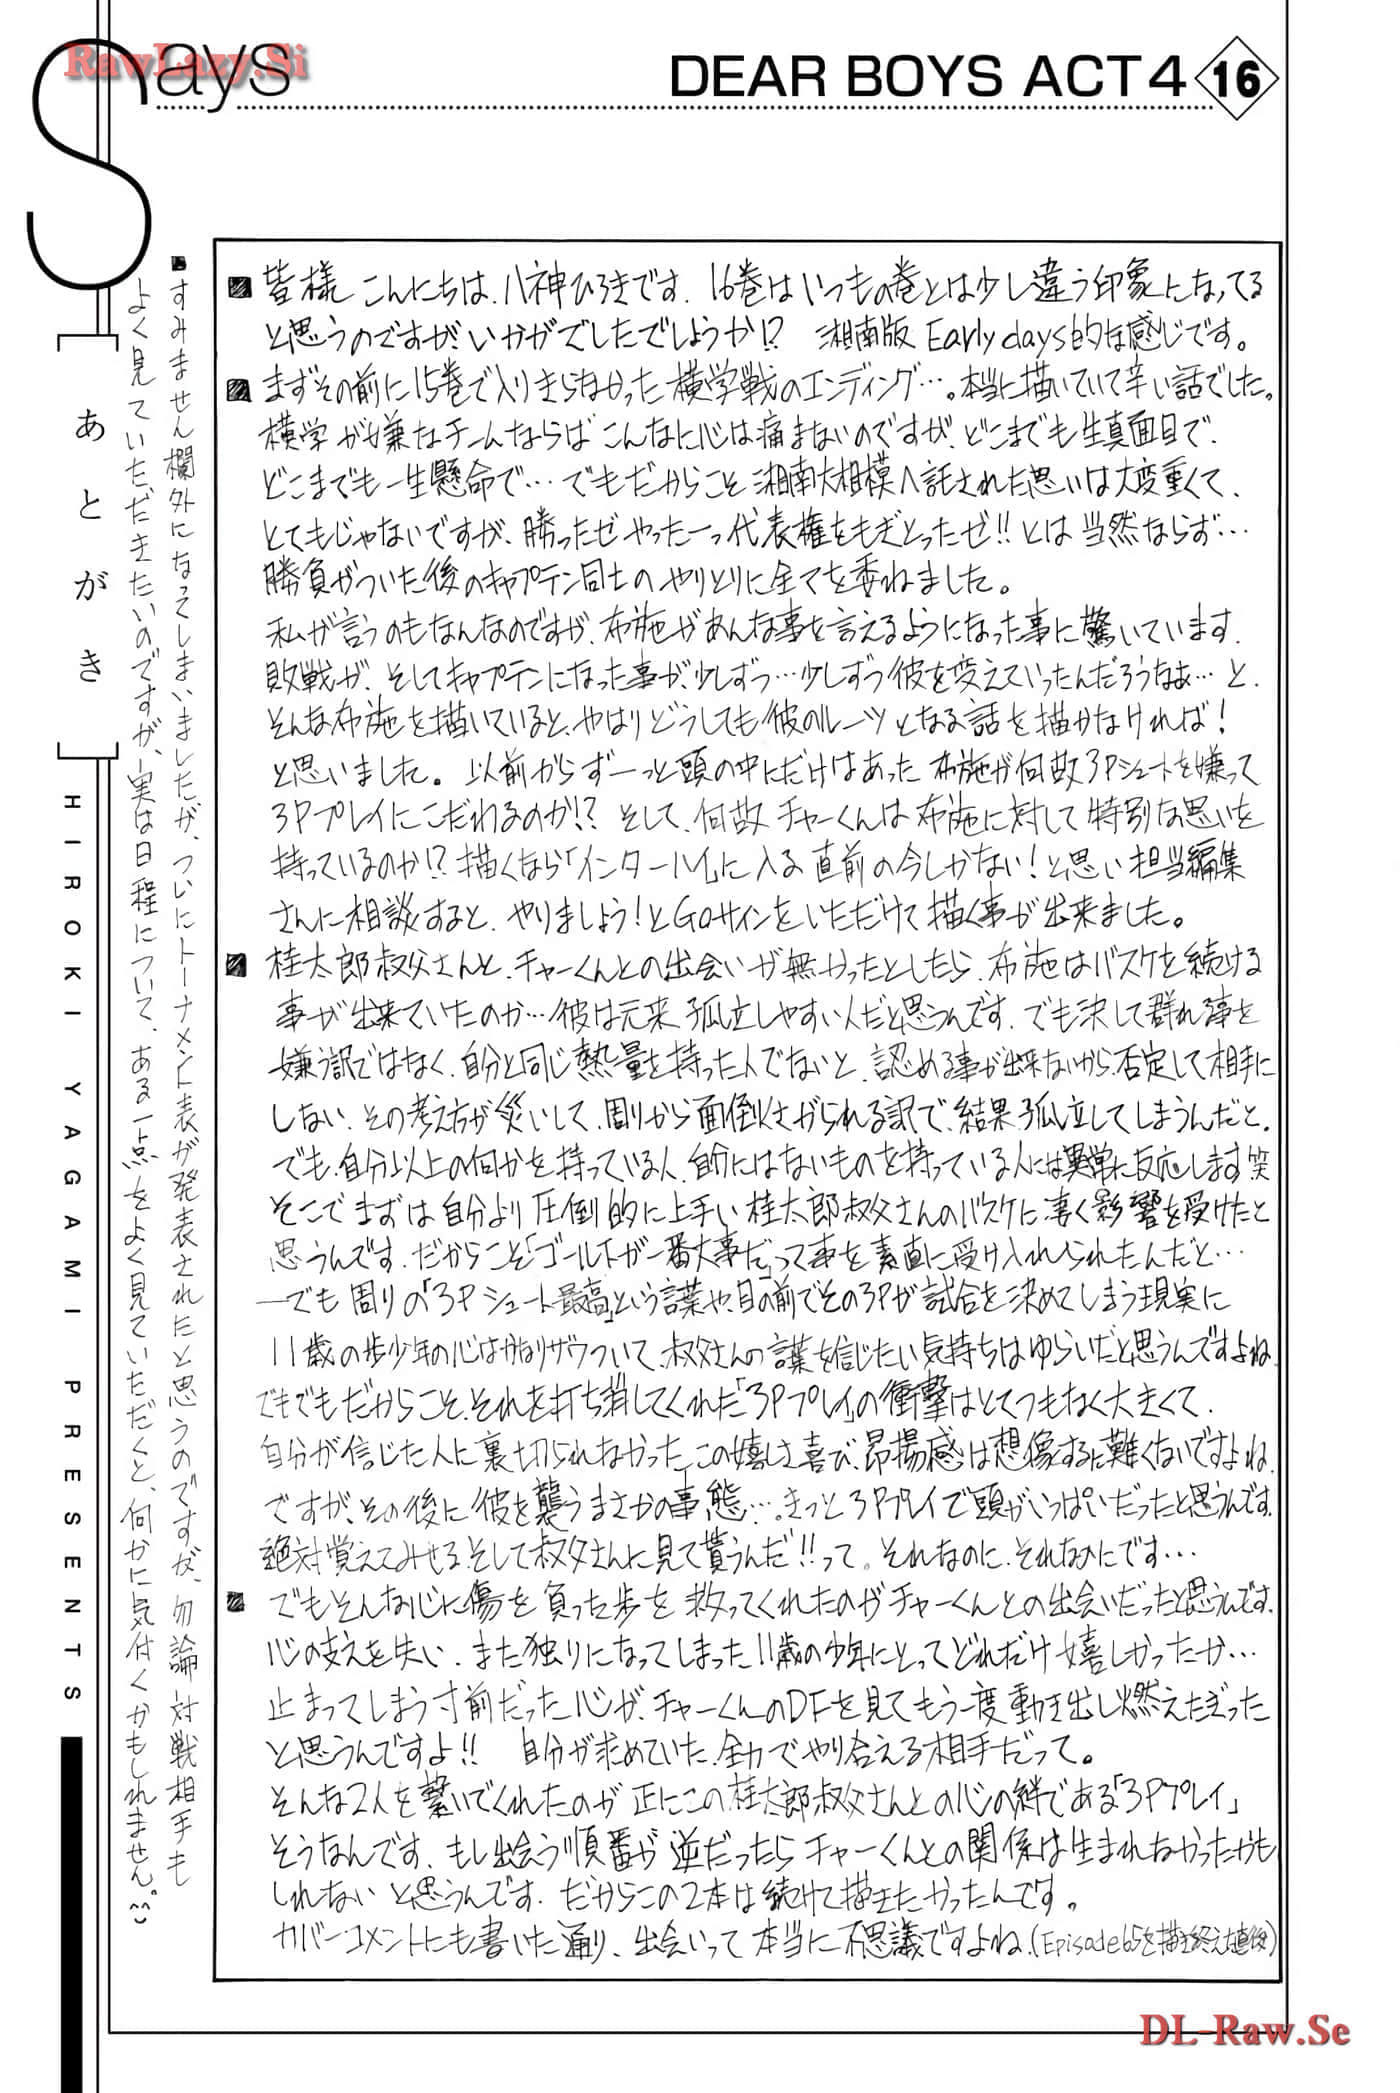 Says
RawLazy.Si
DEAR BOYS ACT4 16
あとがき
HIROKI YAGAMI PRESENTS
■皆様 こんにちは、八神ひろきです。16巻はいつもの巻とは少し違う印象になってる
と思うのですが、いかがでしたでしょうか!? 湘南版 Early days的な感じです。
■まずその前に15巻で入りきらなかった横学戦のエンディング…。本当に描いていて辛い話でした。
横学が嫌なチームならば こんなに心は痛まないのですが、どこまでも生真面目で、
どこまでも一生懸命で…でもだからこそ湘南大相模へ託された思いは大変重くて、
とてもじゃないですが、勝ったぜやったーっ代表権をもぎとったぜ!!とは当然ならず…
勝負がついた後のキャプテン同士のやりとりに全てを委ねました。
私が言うのもなんなのですが、布施があんな事を言えるようになった事に驚いています。
敗戦が、そしてキャプテンになった事が、少しずつ…少しずつ彼を変えていったんだろうなぁ…と、
そんな布施を描いていると、やはりどうしても彼のルーツとなる話を描かなければ!
と思いました。以前からずーっと頭の中にだけはあった 布施が何故3Pシュートを嫌って
3Pプレイにこだわるのか!? そして、何故チャーくんは布施に対して特別な思いを
持っているのか!? 描くなら「インターハイ」に入る直前の今しかない!と思い担当編集
さんに相談すると、やりましょう!とGOサインをいただけて描く事が出来ました。
■桂太郎叔父さんと、チャーくんとの出会いが無かったとしたら、布施はバスケを続ける
事が出来ていたのか…彼は元来 孤立しやすい人だと思うんです。でも決して群れる事を
嫌う訳ではなく、自分と同じ熱量を持った人でないと、認める事が出来ないから、否定して相手に
しない、その考え方が災いして、周りから面倒くさがられる訳で、結果孤立してしまうんだと。
でも、自分以上の何かを持っている人、自分にはないものを持っている人には異常に反応します笑
そこでまずは自分より圧倒的に上手い桂太郎叔父さんのバスケに凄く影響を受けたと
思うんです。だからこそ「ゴール下が一番大事だ」って事を素直に受け入れられたんだと…
―でも周りの「3Pシュート最高」という言葉や、目の前でその3Pが試合を決めてしまう現実に
11歳の歩少年の心はかなりザワついて、叔父さんの言葉を信じたい気持ちはゆらいだと思うんですよね、
でもでもだからこそ、それを打ち消してくれた「3Pプレイ」の衝撃はとてつもなく大きくて、
自分が信じた人に裏切られなかった、この嬉しさ喜び、昂揚感は想像するに難くないですよね。
ですが、その後に彼を襲うまさかの事態…。きっと3Pプレイで頭がいっぱいだったと思うんです。
絶対覚えてみせる、そして叔父さんに見て貰うんだ!!って。それなのに、それなのにです…
■でもそんな心に傷を負った歩を救ってくれたのがチャーくんとの出会いだったと思うんです。
心の支えを失い、また独りになってしまった11歳の少年にとってどれだけ嬉しかったか…
止まってしまう寸前だった心が、チャーくんのDFを見てもう一度動き出し燃えたぎった
と思うんですよ!! 自分が求めていた、全力でやり合える相手だって。
そんな2人を繋いでくれたのが正にこの桂太郎叔父さんとの心の絆である「3Pプレイ」
そうなんです、もし出会う順番が逆だったらチャーくんとの関係は生まれなかったかも
しれないと思うんです。だからこの2本は続けて描きたかったんです。
カバーコメントにも書いた通り、出会いって本当に不思議ですよね。(Episode65を描き終えた直後)
■すみません欄外になってしまいましたが、ついにトーナメント表が発表されたと思うのですが、勿論対戦相手も
よく見ていただきたいのですが、実は日程について、ある一点をよく見ていただくと、何かに気付くかもしれません。^^
DL-Raw.Se